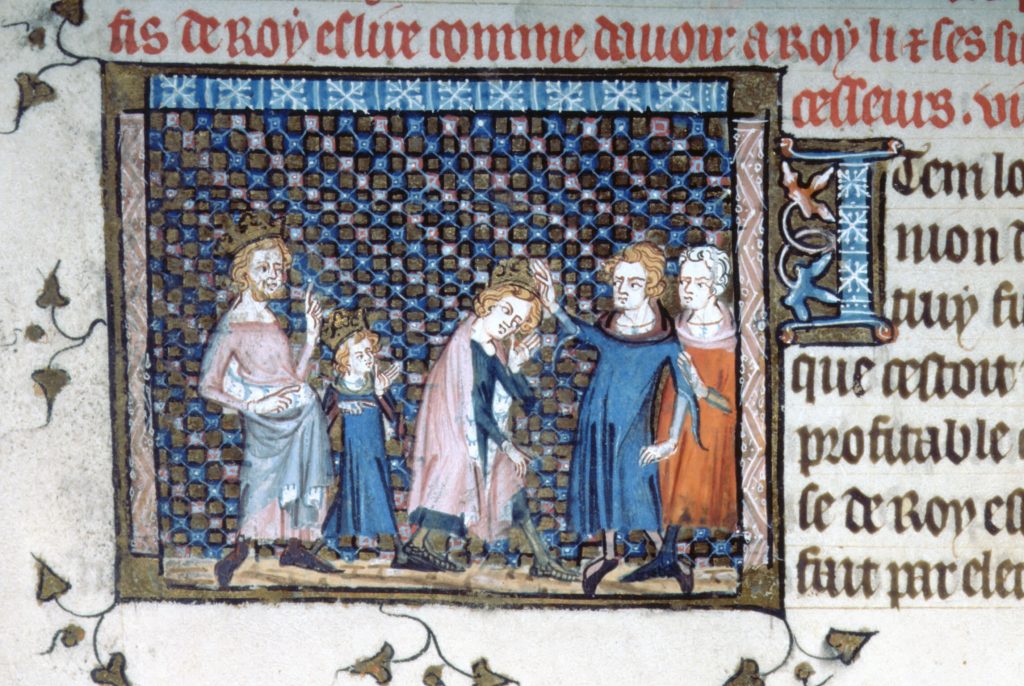 fis de Roy eslire comme dauoir a Roy li ⁊ ses su
cesseurs. vi
Item lo
nion d
tuuy fu
que cestoit
profitable
se de Roy esl
fait par elec